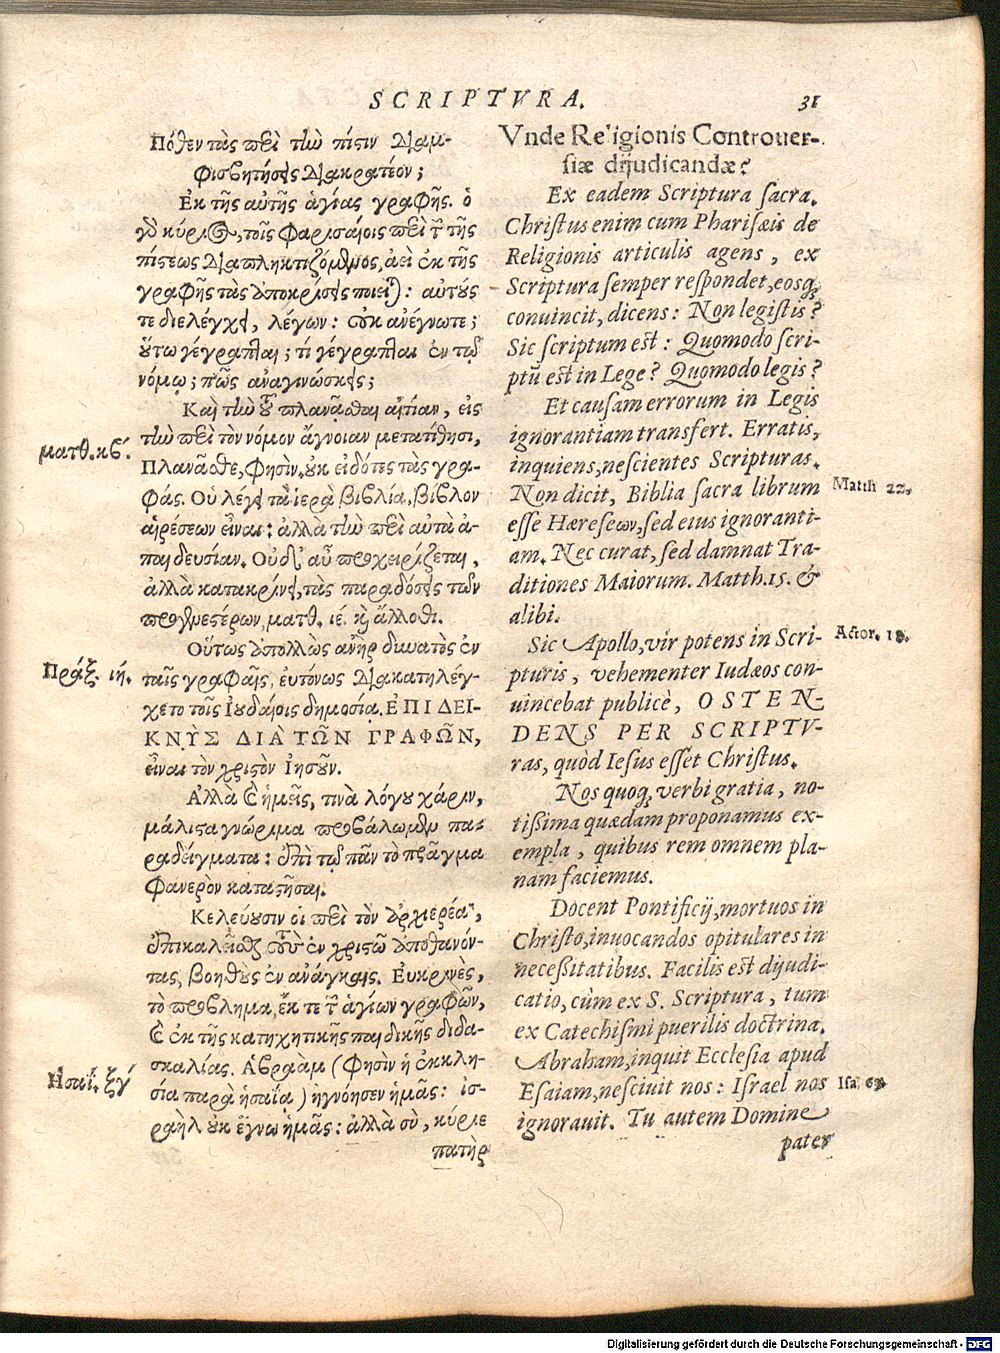 SCRIPTVRA.
31
Πόθεν τὰς περὶ τὴν πίστιν διαμ-
φισβητήσεις διακρατέον;
Ἐκ τῆς αὐτῆς ἁγίας γραφῆς. ὁ
γὸ κύριος, τοῖς Φαρισαίοις περὶ τ͂ τῆς
πίστεως διαπληκτιζόμενος, ἀεὶ ἐκ τῆς
γραφῆς τὰς ἀποκρίσεις ποιεῖται: αὐτούς
τε διελέγχει, λέγων: οὐκ ἀνέγνωτε;
οὕτω γέγραπται; τί γέγραπται ἐν τῷ
νόμῳ; πῶς ἀναγινώσκεις;
Καὶ τὴν τοῦ πλανᾶσθαι αἰτίαν, εἰς
τὴν περὶ τὸν νόμον ἄγνοιαν μετατίθησι,
Πλανᾶσθε, φησὶν, οὐκ εἰδότες τὰς γρα-
φάς. Οὐ λέγει τὰ ἱερὰ βιβλία, βίβλον
αἱρέσεων εἶναι: ἀλλὰ τὴν περὶ αὐτὰ ἀ-
παιδευσίαν. Οὐδ' αὖ προχειρίζεται,
ἀλλὰ κατακρίνει, τὰς παραδόσεις τῶν
προγενεστέρων, ματθ. ιέ. καὶ ἄλλοθι.
Οὕτως ἀπολλὼς ἀνὴρ δυνατὸς ἐν
ταῖς γραφαῖς, εὐτόνως διακατηλέγ-
χετο τοῖς Ἰουδαίοις δημοσίᾳ. ἘΠΙΔΕΙ-
ΚΝῪΣ ΔΙΑ ΤΩ͂Ν ΓΡΑΦΩ͂Ν,
εἶναι τὸν χριστὸν Ἰησοῦν.
Ἀλλὰ καὶ ἡμεῖς, τινὰ λόγου χάριν,
μάλιστα γνώριμα προβάλωμεν πα-
ραδείγματα: ἐπὶ τῷ πᾶν τὸ πρᾶγμα
φανερὸν καταστῆσαι.
Κελεύουσιν οἱ περὶ τὸν ἀρχιερέα,
ἐπικαλεῖσθαι τοὺς ἐν χριστῷ ἀποθανόν-
τας, βοηθοὺς ἐν ἀνάγκαις. Εὐκρινὲς,
τὸ πρόβλημα, ἔκ τε τ͂ ἁγίων γραφῶν,
καὶ ἐκ τῆς κατηχητικῆς παιδικῆς διδα-
σκαλίας. Ἀβραὰμ (φησὶν ἡ ἐκκλη-
σία παρὰ ἡσαΐᾳ) ἠγνόησεν ἡμᾶς: ἰσ-
ραὴλ οὐκ ἔγνω ἡμᾶς: ἀλλὰ σὺ, κύριε
πατὴρ
ματθ. κβ́.
Πράξ. ιή.
Ἡσαΐ. ξγ́
Vnde Religionis Controuer-
siæ dijudicandæ?
Ex eadem Scriptura sacra.
Christus enim cum Pharisæis de
Religionis articulis agens, ex
Scriptura semper respondet, eosq;
conuincit, dicens: Non legistis?
Sic scriptum est: Quomodo scri-
ptũ est in Lege? Quomodo legis?
Et causam errorum in Legis
ignorantiam transfert. Erratis,
inquiens, nescientes Scripturas.
Non dicit, Biblia sacra librum
esse Hæreseων, sed eius ignoranti-
am. Nec curat, sed damnat Tra-
ditiones Maiorum. Matth. 15. &
alibi.
Sic Apollo, vir potens in Scri-
pturis, vehementer Iudæos con-
uincebat publicè, OSTEN-
DENS PER SCRIPTV-
ras, quòd Iesus esset Christus.
Nos quoq; verbi gratia, no-
tißima quædam proponamus ex-
empla, quibus rem omnem pla-
nam faciemus.
Docent Pontificij, mortuos in
Christo, inuocandos opitulares in
necessitatibus. Facilis est dijudi-
catio, cùm ex S. Scriptura, tum
ex Catechismi puerilis doctrina.
Abraham, inquit Ecclesia apud
Esaiam, nesciuit nos: Israel nos
ignorauit. Tu autem Domine
pater
Matth 22.
Actor. 18.
Isa. 63.
Digitalisierung gefördert durch die Deutsche Forschungsgemeinschaft - DFG